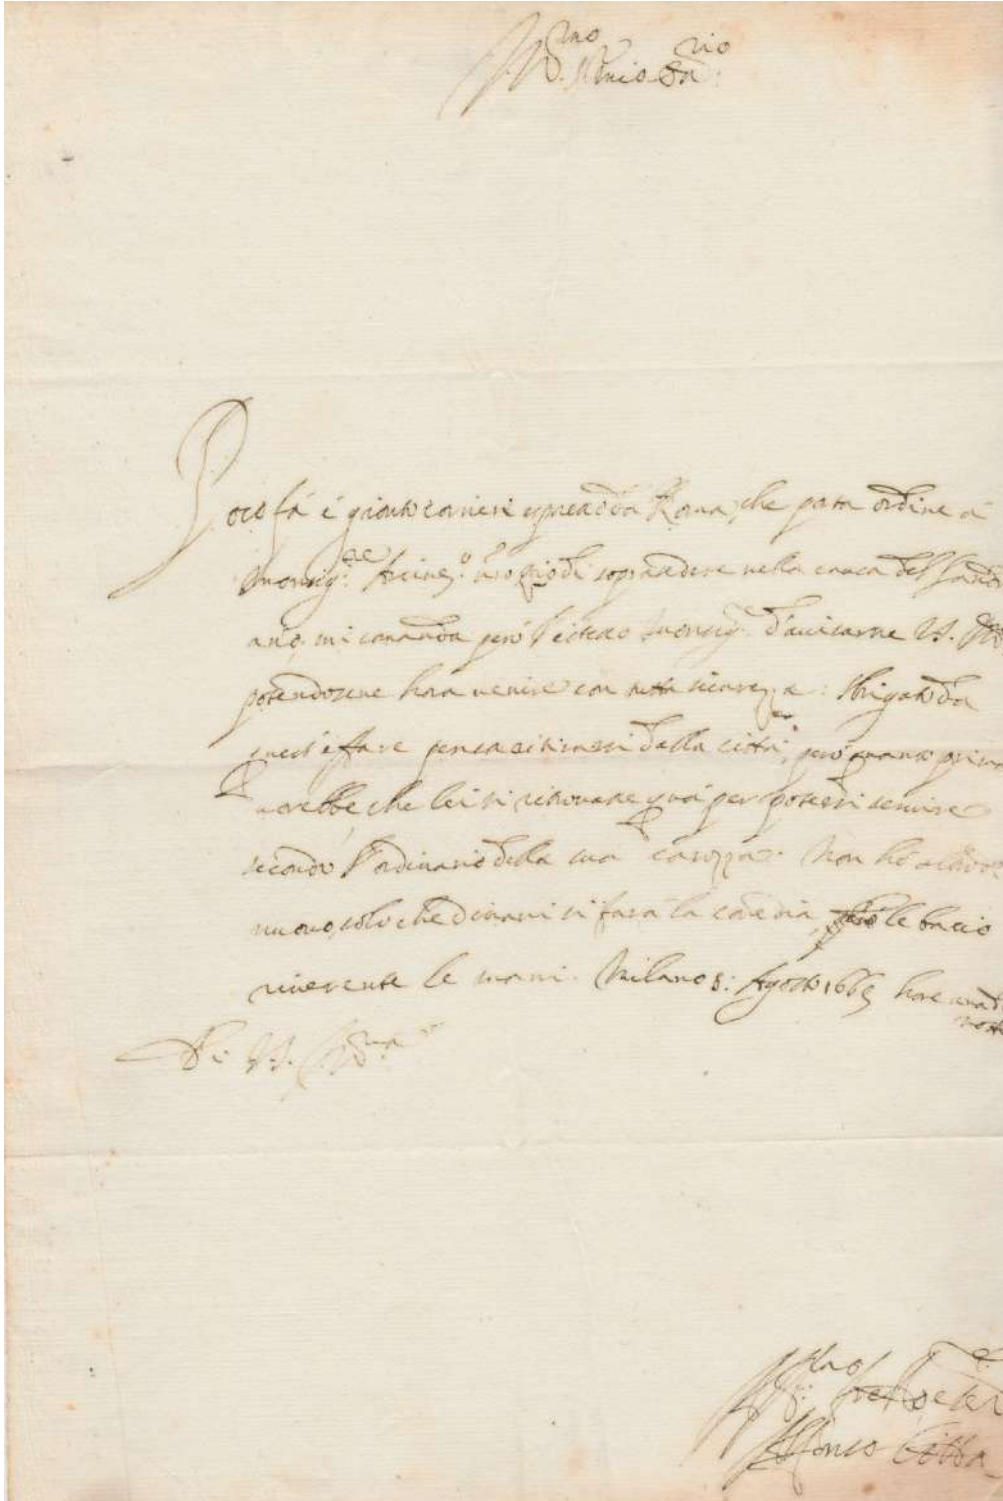 Ill.mo Sig.r mio
Poco fá é gionto corriere espresso da Roma, che porta ordine á
Monsig.re Arcives.o di soprasedere nella causa del
mi comanda peró l'istesso Monsig.re d'avisarne V. S. Ill
potendosene hora venire con tutta sicurezza: sbrigato da
quest'affare pensa ritirarsi dalla cittá, peró quanto prima
vorebbe che lei si ritrovasse quá per potersi servire
secondo l'ordinario della sua carozza. Non hó altro
nuovo, solo che dimani si fará la comedia, peró le bacio
riverente le mani. Milano 5: Agosto 1665 hore una di
notte
Di V. S. Ill.ma
Alfonso